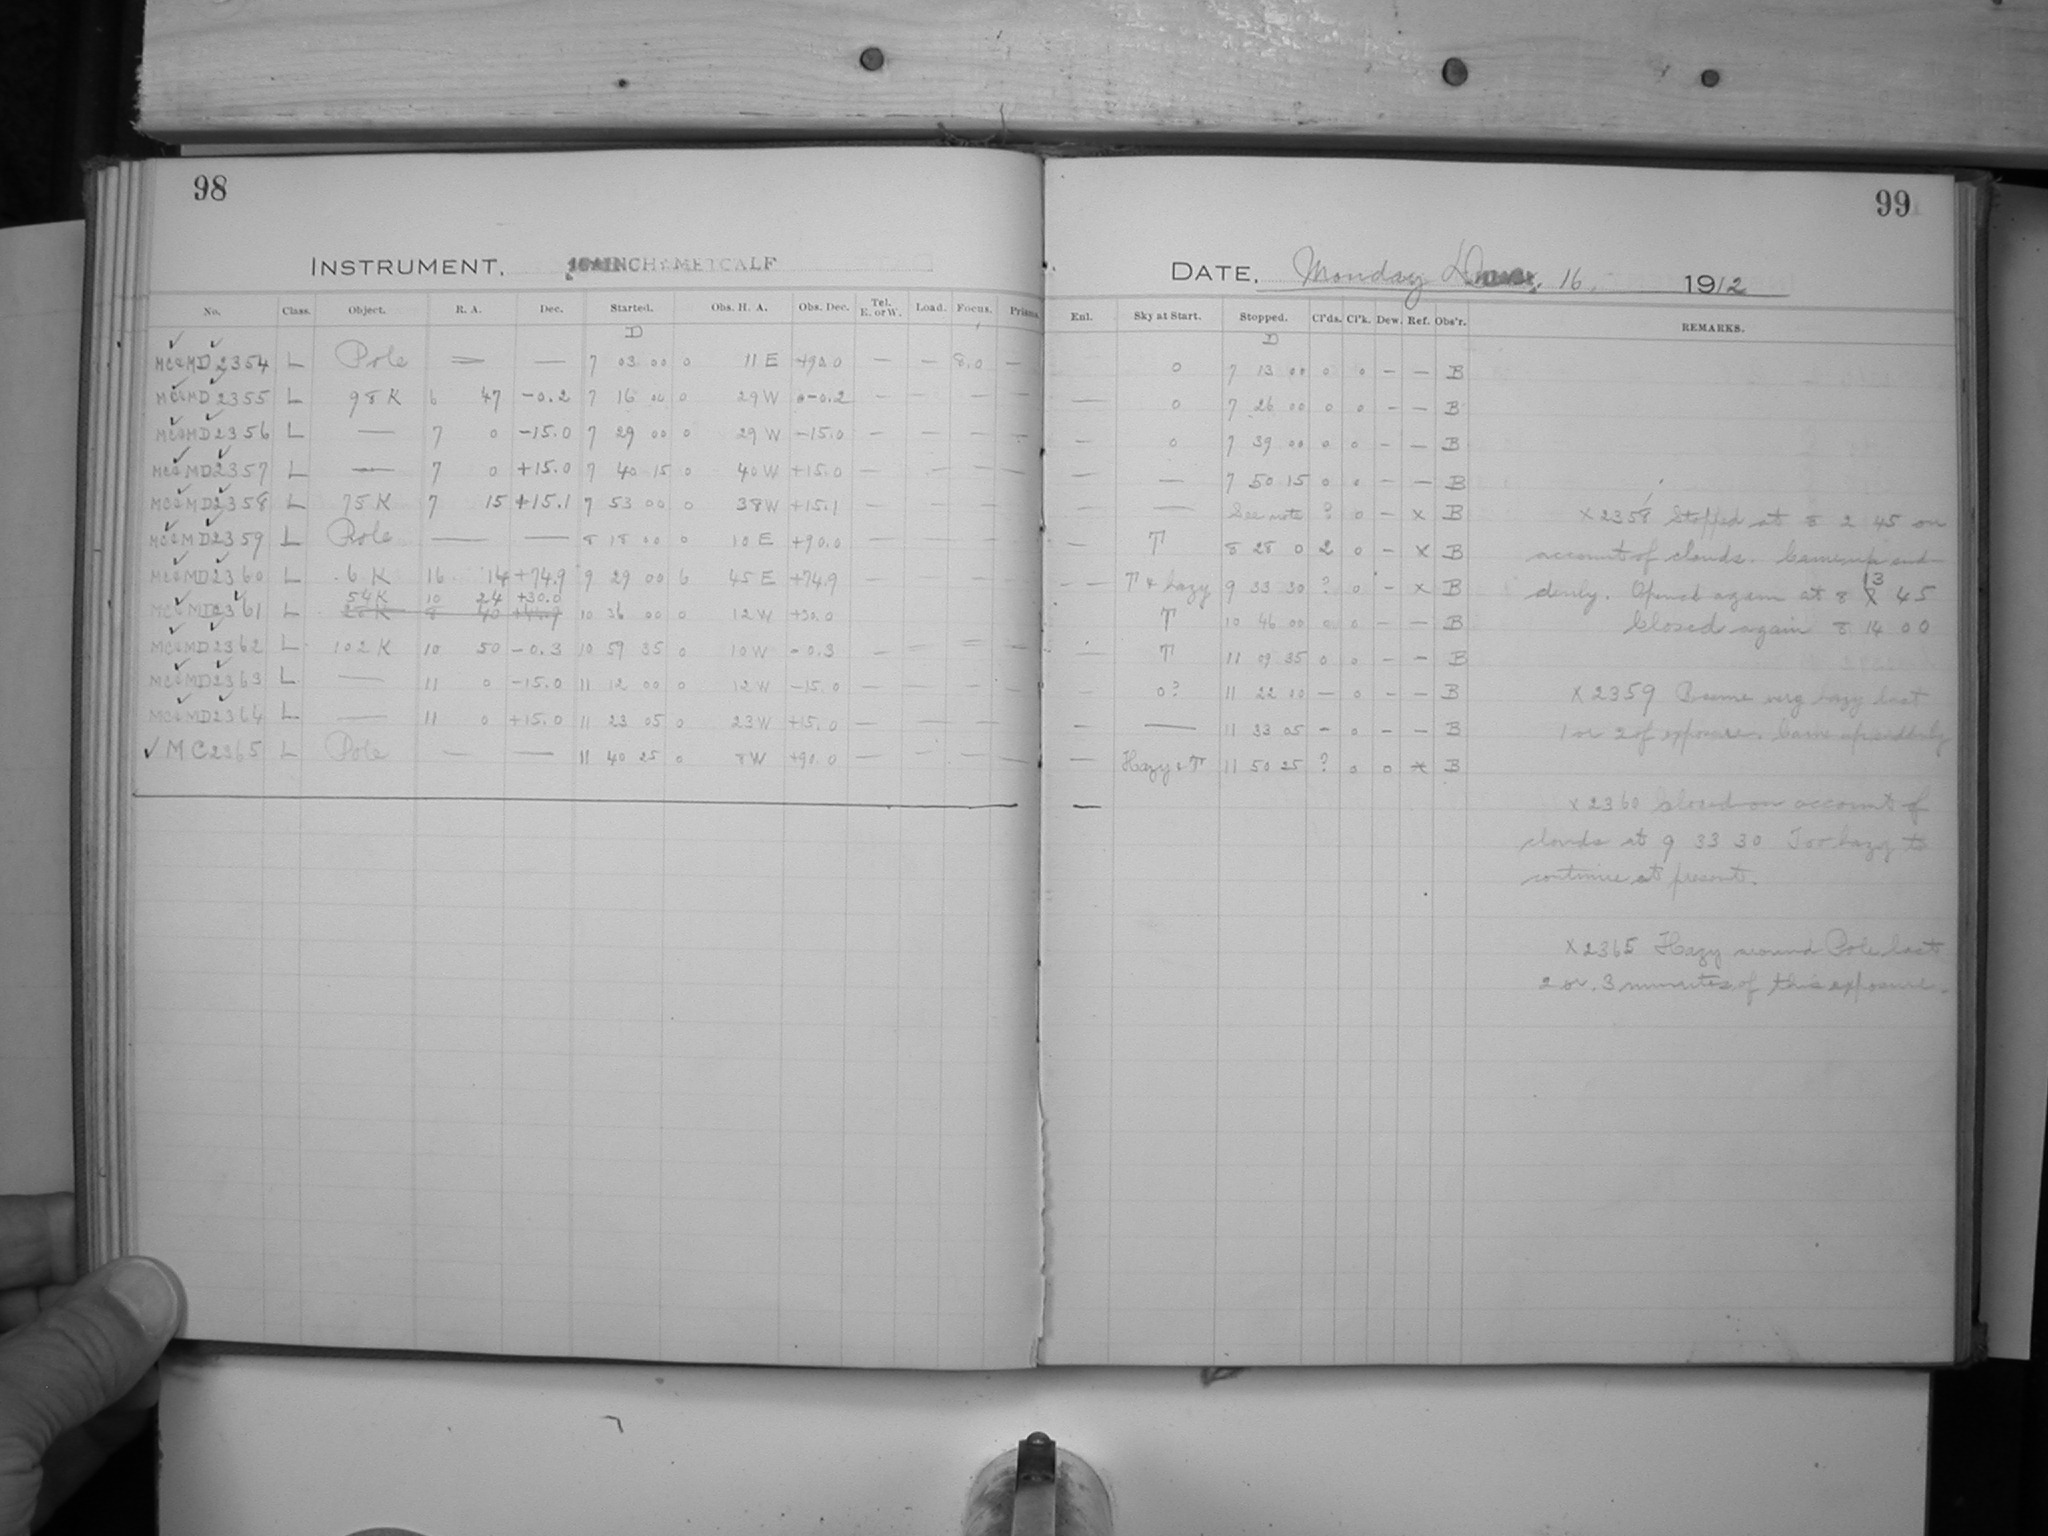 98
INSTRUMENT, 16 INCH METCALF
No. Class. Object. R. A. Dec. Started. Obs. H. A. Obs. Dec. Tel. E. or W. Load. Focus. Prisms.
D
MC&MD2354 L Pole — — 7 03 00 0 11 E +90.0 — — 8.0 —
MC&MD2355 L 98 K 6 47 -0.2 7 16 00 0 29 W -0.2 — — — —
MC&MD2356 L — 7 0 -15.0 7 29 00 0 29 W -15.0 — — — —
MC&MD2357 L — 7 0 +15.0 7 40 15 0 40 W +15.0 — — — —
MC&MD2358 L 75 K 7 15 +15.1 7 53 00 0 38 W +15.1 — — — —
MC&MD2359 L Pole — — 8 18 00 0 10 E +90.0 — — — —
MC&MD2360 L 6 K 16 14 +74.9 9 29 00 6 45 E +74.9 — — — —
54 K 10 24 +30.0
MC&MD2361 L 28 K 8 40 +44.9 10 36 00 0 12 W +30.0
MC&MD2362 L 102 K 10 50 -0.3 10 59 35 0 10 W -0.3 — — — —
MC&MD2363 L — 11 0 -15.0 11 12 00 0 12 W -15.0 — — — —
MC&MD2364 L — 11 0 +15.0 11 23 05 0 23 W +15.0 — — — —
MC2365 L Pole — — 11 40 25 0 8 W +90.0 — — — —
99
DATE, Monday Dec. 16, 1912
Enl. Sky at Start. Stopped. Cl'ds. Cl'k. Dew. Ref. Obs'r. REMARKS.
D
0 7 13 00 0 0 — — B
— 0 7 26 00 0 0 — — B
— 0 7 39 00 0 0 — — B
— — 7 50 15 0 0 — — B
— — See note ? 0 — x B
— T 8 28 0 2 0 — x B
— T & hazy 9 33 30 ? 0 — x B
T 10 46 00 0 0 — — B
— T 11 09 35 0 0 — — B
— 0? 11 22 00 — 0 — — B
— — 11 33 05 — 0 — — B
— Hazy & T 11 50 25 ? 0 0 x B
x 2358 Stopped at 8 2 45 on
account of clouds. Came up sud-
denly. Opened again at 8 13 45
Closed again 8 14 00
x 2359 Became very hazy last
1 or 2 of exposure. Came up suddenly
x 2360 Closed on account of
clouds at 9 33 30 Too hazy to
continue at present.
x 2365 Hazy around Pole last
2 or 3 minutes of this exposure.